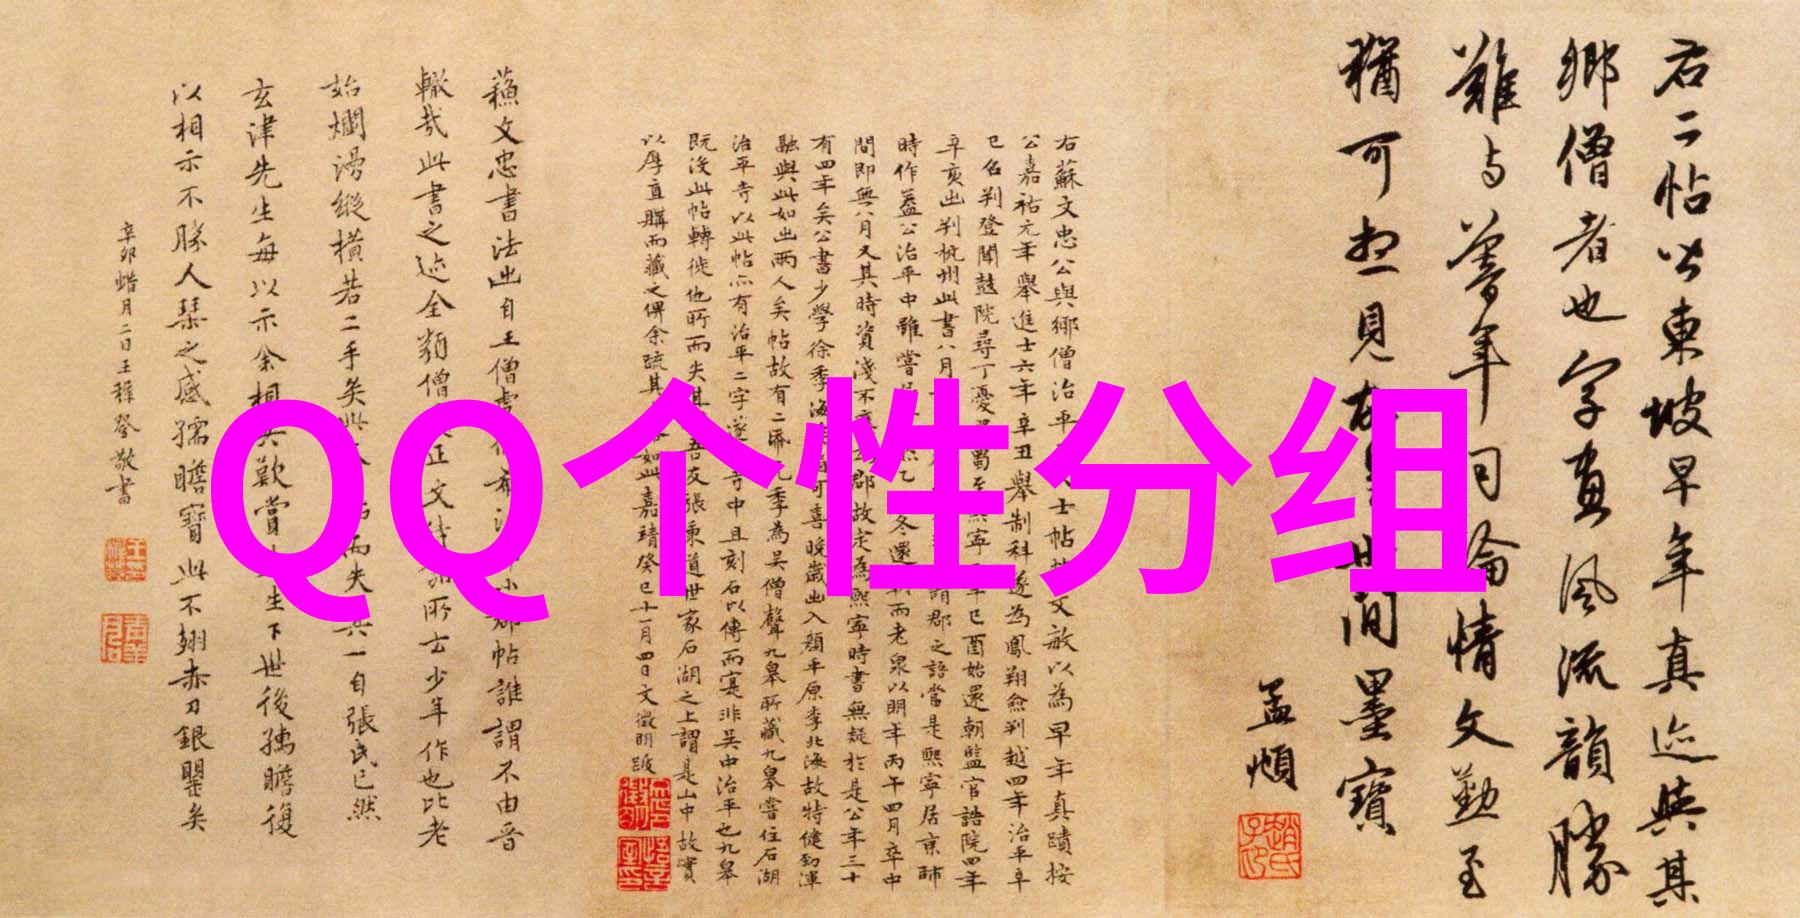 QQ个性分组
右二帖皆東坡早年真迹與其
鄉僧者也字畫風流韻勝
難与暮年同論情文勤至
猶可想見故
間墨寶
孟頫
右蘇文忠公與鄉僧治平
士帖
文敏以為早年真蹟按
公嘉祐元年舉進士六年辛丑舉制科遂為鳳翔僉判越四年治平
已召判登聞鼓院尋丁憂
熙寧
年己酉始還朝監官誥院四年
辛亥出判杭州此書八月
謂郡之語當是熙寧居京師
時作蓋公治平中雖嘗
冬還
而老泉以明年丙午四月卒中
間即無八月又其時資淺不
郡故定為熙寧時書無疑於是公年三十
有四年矣公書少學徐季海
可喜晚歲出入顏平原李北海故特健勁渾
融與此如出兩人矣帖故有二
九季為吳僧聲九皋所藏九皋嘗住石湖
治平寺以此帖亦有治平二字遂
寺中且刻石以傳而寔非吳中治平也九皋
既沒此帖轉徙他所而失其
吾友張秉道世家石湖之上謂是山中故實
以厚直購而藏之俾余疏其
如此嘉靖癸巳十一月四日文徵明跋
蘇文忠書法出自王僧虔
帖誰謂不由晉
轍哉此書之迹全類僧
正文
所士少年作也比老
始爛漫縱橫若二手矣
而失其一自張氏已然
玄津先生每以示余相與歎賞
生下世後孺瞻復
以相示不勝人琴之感孺瞻寶此不翅赤刀銀甖矣
辛卯蜡月二日王穉登敬書